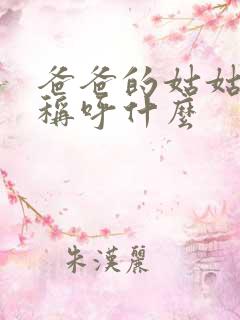 爸爸的姑姑
稱呼什麼
朱漢麗